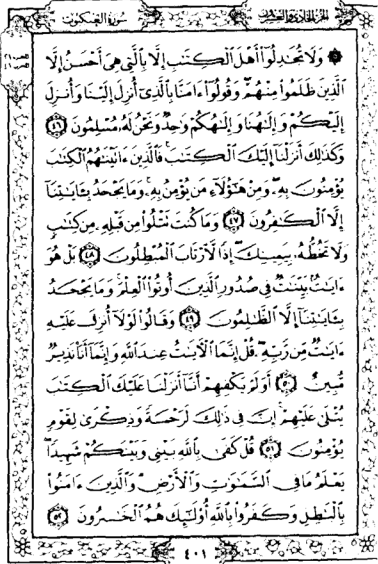 الجزء الحادي والعشرون
سورة العنكبوت
۞ وَلَا تُجَٰدِلُوٓا۟ أَهْلَ ٱلْكِتَٰبِ إِلَّا بِٱلَّتِى هِىَ أَحْسَنُ إِلَّا
ٱلَّذِينَ ظَلَمُوا۟ مِنْهُمْ ۖ وَقُولُوٓا۟ ءَامَنَّا بِٱلَّذِىٓ أُنزِلَ إِلَيْنَا وَأُنزِلَ
إِلَيْكُمْ وَإِلَٰهُنَا وَإِلَٰهُكُمْ وَٰحِدٌ وَنَحْنُ لَهُۥ مُسْلِمُونَ ٤٦
وَكَذَٰلِكَ أَنزَلْنَآ إِلَيْكَ ٱلْكِتَٰبَ ۚ فَٱلَّذِينَ ءَاتَيْنَٰهُمُ ٱلْكِتَٰبَ
يُؤْمِنُونَ بِهِۦ ۖ وَمِنْ هَٰٓؤُلَآءِ مَن يُؤْمِنُ بِهِۦ ۚ وَمَا يَجْحَدُ بِـَٔايَٰتِنَآ
إِلَّا ٱلْكَٰفِرُونَ ٤٧ وَمَا كُنتَ تَتْلُوا۟ مِن قَبْلِهِۦ مِن كِتَٰبٍ
وَلَا تَخُطُّهُۥ بِيَمِينِكَ ۖ إِذًا لَّٱرْتَابَ ٱلْمُبْطِلُونَ ٤٨ بَلْ هُوَ
ءَايَٰتٌۢ بَيِّنَٰتٌ فِى صُدُورِ ٱلَّذِينَ أُوتُوا۟ ٱلْعِلْمَ ۚ وَمَا يَجْحَدُ
بِـَٔايَٰتِنَآ إِلَّا ٱلظَّٰلِمُونَ ٤٩ وَقَالُوا۟ لَوْلَآ أُنزِلَ عَلَيْهِ
ءَايَٰتٌ مِّن رَّبِّهِۦ ۖ قُلْ إِنَّمَا ٱلْءَايَٰتُ عِندَ ٱللَّهِ وَإِنَّمَآ أَنَا۠ نَذِيرٌ
مُّبِينٌ ٥٠ أَوَلَمْ يَكْفِهِمْ أَنَّآ أَنزَلْنَا عَلَيْكَ ٱلْكِتَٰبَ
يُتْلَىٰ عَلَيْهِمْ ۚ إِنَّ فِى ذَٰلِكَ لَرَحْمَةً وَذِكْرَىٰ لِقَوْمٍ
يُؤْمِنُونَ ٥١ قُلْ كَفَىٰ بِٱللَّهِ بَيْنِى وَبَيْنَكُمْ شَهِيدًا ۖ
يَعْلَمُ مَا فِى ٱلسَّمَٰوَٰتِ وَٱلْأَرْضِ ۗ وَٱلَّذِينَ ءَامَنُوا۟
بِٱلْبَٰطِلِ وَكَفَرُوا۟ بِٱللَّهِ أُو۟لَٰٓئِكَ هُمُ ٱلْخَٰسِرُونَ ٥٢
٤٠١